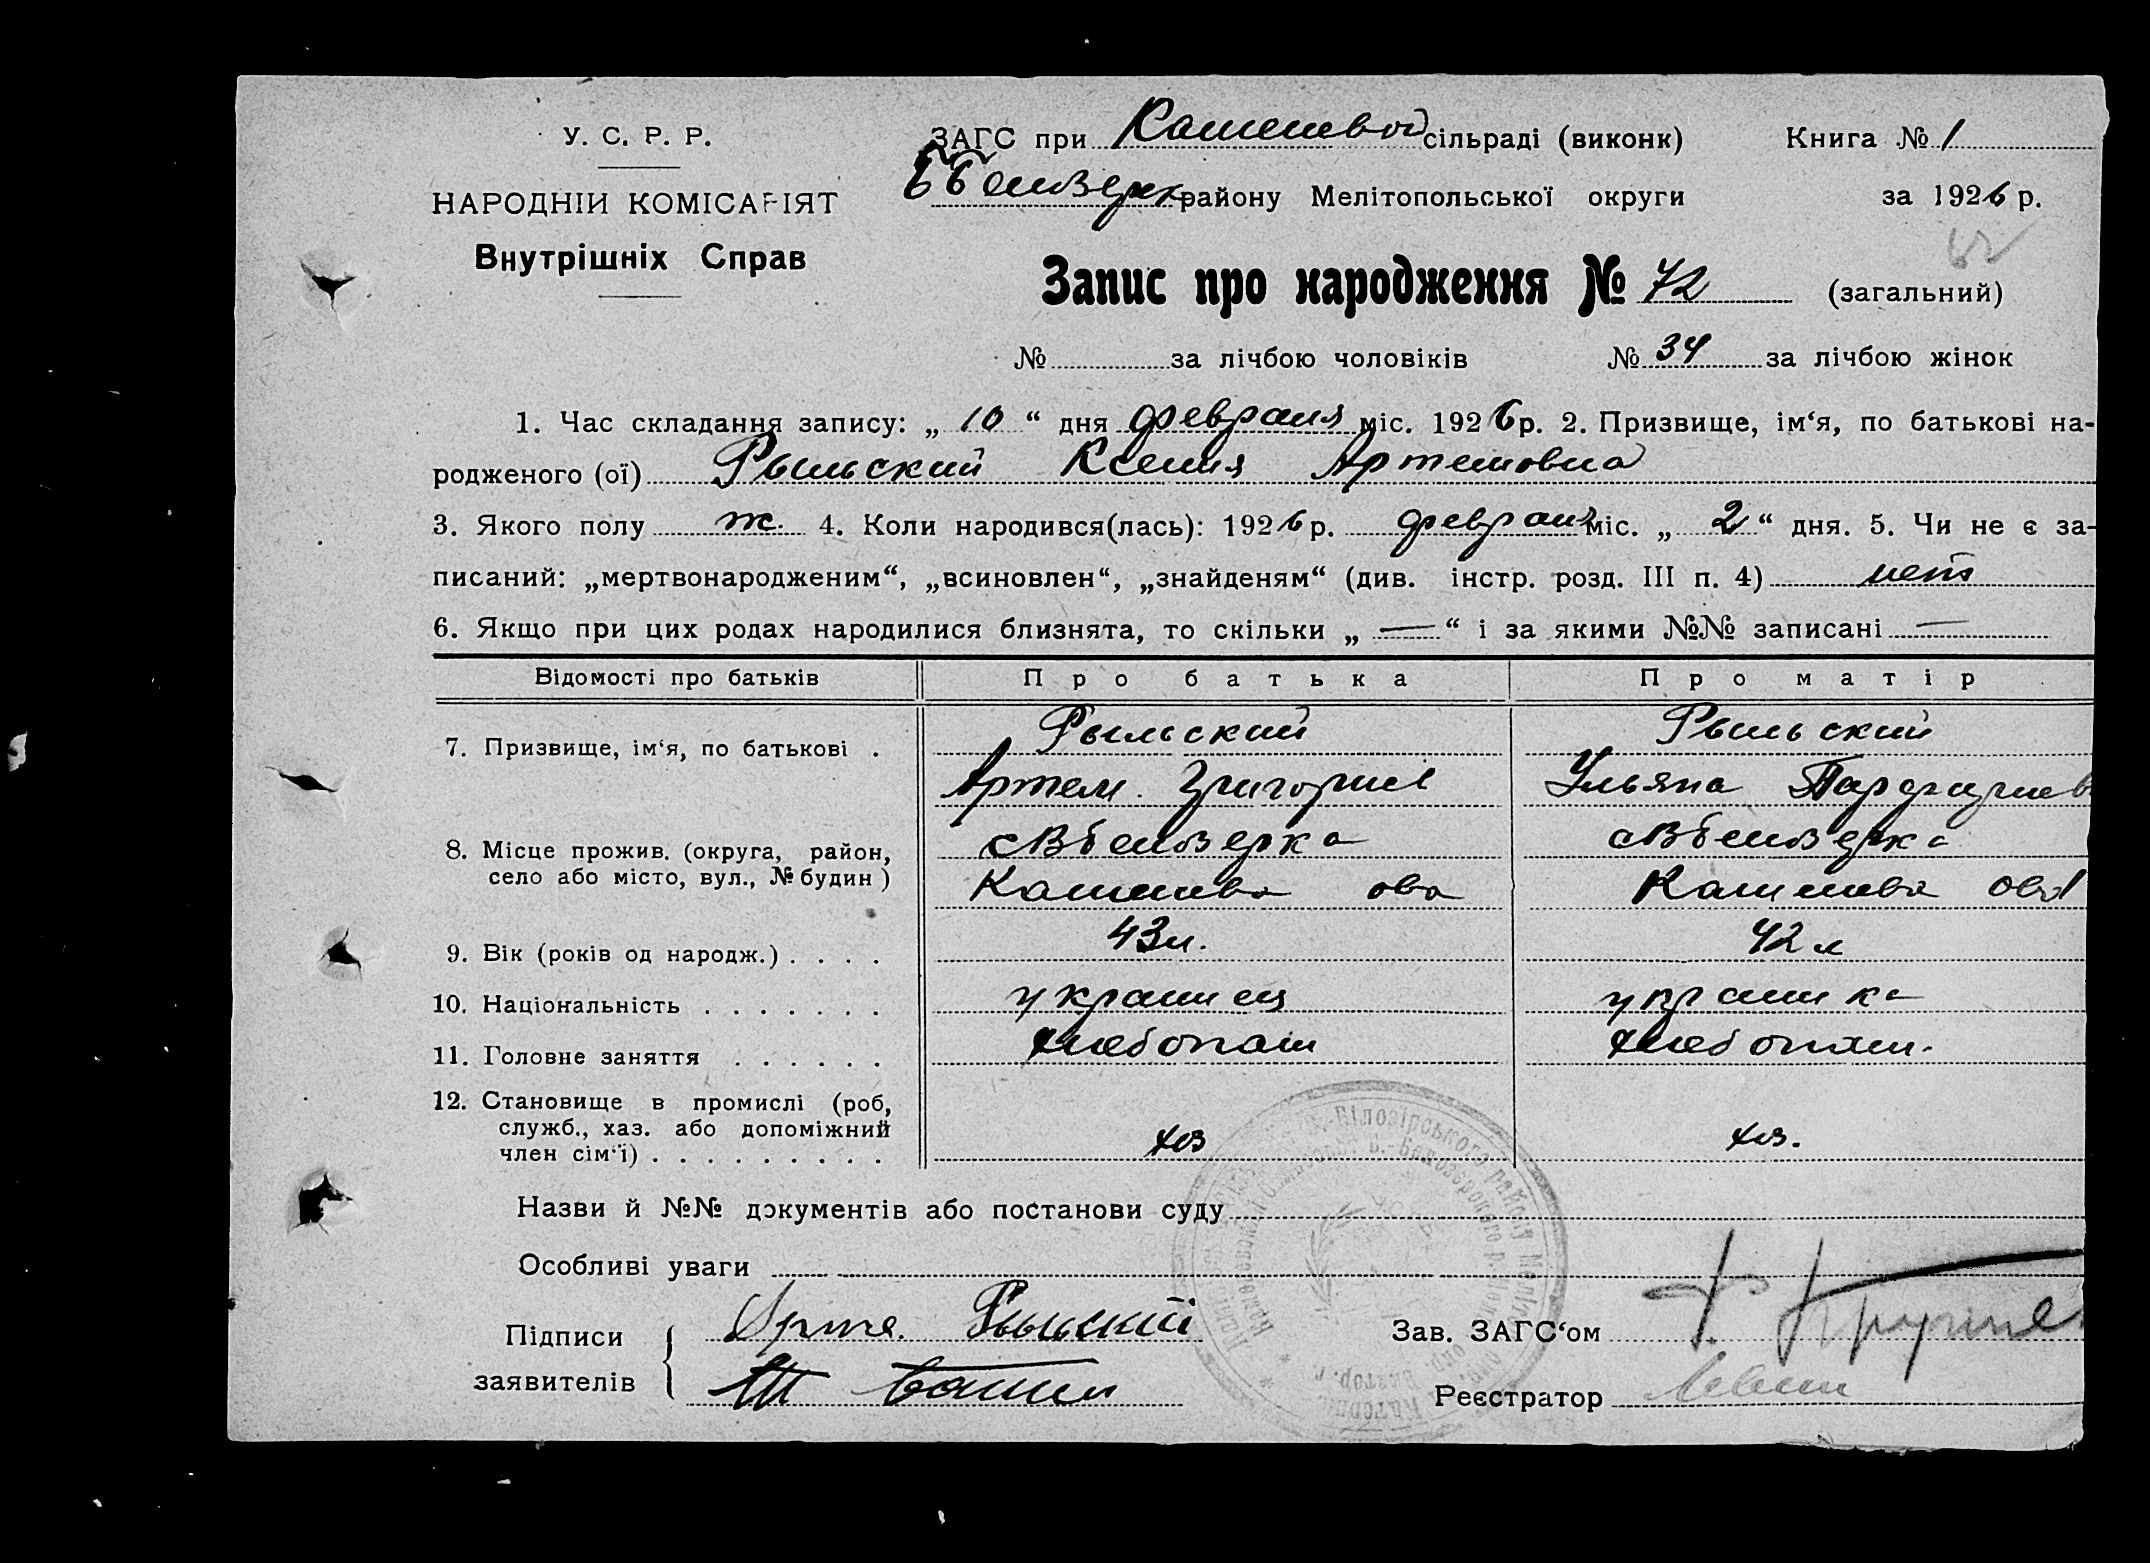 У. С. Р. Р.
НАРОДНІЙ КОМІСАРІЯТ
Внутрішніх Справ
ЗАГС при сільраді (виконк) Книга № 1
району Мелітопольської округи за 1926 р.
Запис про народження № 72 (загальний)
№ за лічбою чоловіків № 34 за лічбою жінок
1. Час складання запису: „ 10 “ дня февраля міс. 1926 р. 2. Призвище, ім‘я, по батькові на-
родженого (ої) Рыльский Ксения Артемовна
3. Якого полу ж. 4. Коли народився(лась): 1926 р. февраля міс. „ 2 “ дня. 5. Чи не є за-
писаний: „мертвонародженим“, „всиновлен“, „знайденям“ (див. інстр. розд. III п. 4) нет
6. Якщо при цих родах народилися близнята, то скільки „ — “ і за якими №№ записані —
Відомості про батьків Про батька Про матір
7. Призвище, ім‘я, по батькові . Рыльский Рыльский
Артем. Григориев Ульяна
8. Місце прожив. (округа, район, сВбелозерка сВбелозерка
село або місто, вул., № будин )
9. Вік (років од народж.) . . . . 43 л. 42 л
10. Національність . . . . . . . украинец украинка
11. Головне заняття . . . . . . хлебопаш хлебопаш.
12. Становище в промислі (роб,
служб., хаз. або допоміжний
член сім‘ї) . . . . . . . . . хоз хоз.
Назви й №№ документів або постанови суду
Особливі уваги
Підписи Рыльский Зав. ЗАГС‘ом
заявителів Реєстратор